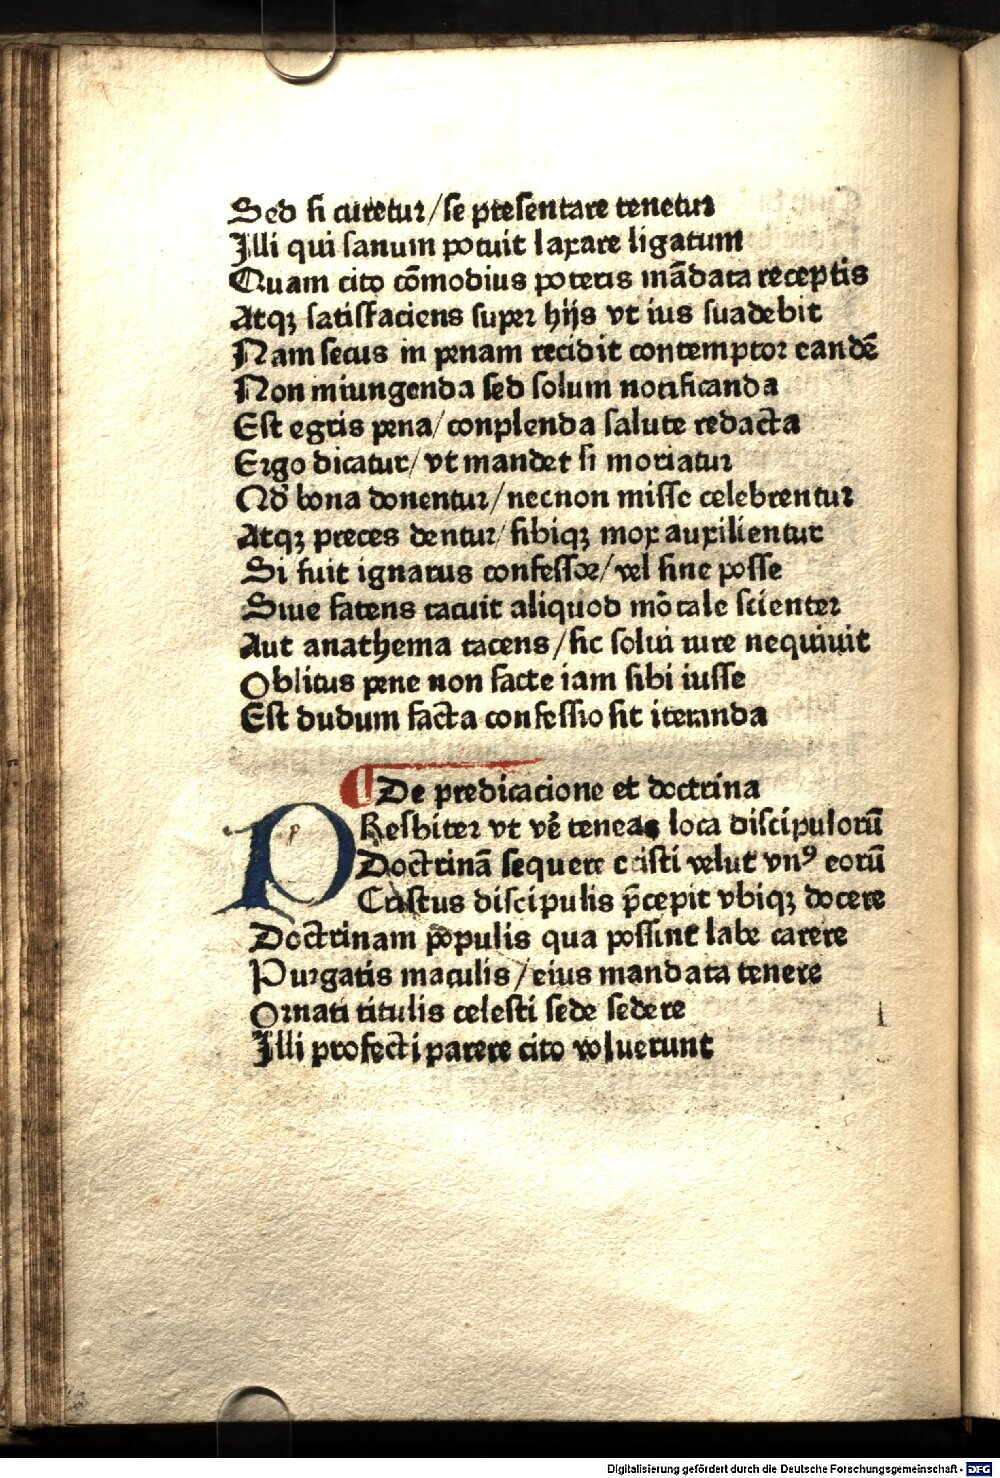 Sed si curetur/se presentare tenetur
Illi qui sanum potuit laxare ligatum
Quam cito cōmodius poteris mādata receptis
Atqꝫ satisfaciens super hijs vt ius suadebit
Nam secus in penam recidit contemptor eandē
Non iniungenda sed solum notificanda
Est egris pena/conplenda salute redacta
Ergo dicatur/vt mandet si moriatur
bona donentur/necnon misse celebrentur
Atqꝫ preces dentur/sibiqꝫ mox auxilientur
Si fuit ignarus confessor/vel sine posse
Siue fatens tacuit aliquod mōtale scienter
Aut anathema tacens/sic solui iure nequiuit
Oblitus pene non facte iam sibi iusse
Est dudum facta confessio sit iteranda
¶ De predicacione et doctrina
PResbiter vt vē teneas loca discipulorū
Doctrinā sequere cristi velut vnꝰ eorū
Cristus discipulis p̄cepit vbiqꝫ docere
Doctrinam populis qua possint labe carere
Purgatis maculis/eius mandata tenere
Ornati titulis celesti sede sedere
Illi profecti parere cito voluerunt
Digitalisierung gefördert durch die Deutsche Forschungsgemeinschaft - DFG